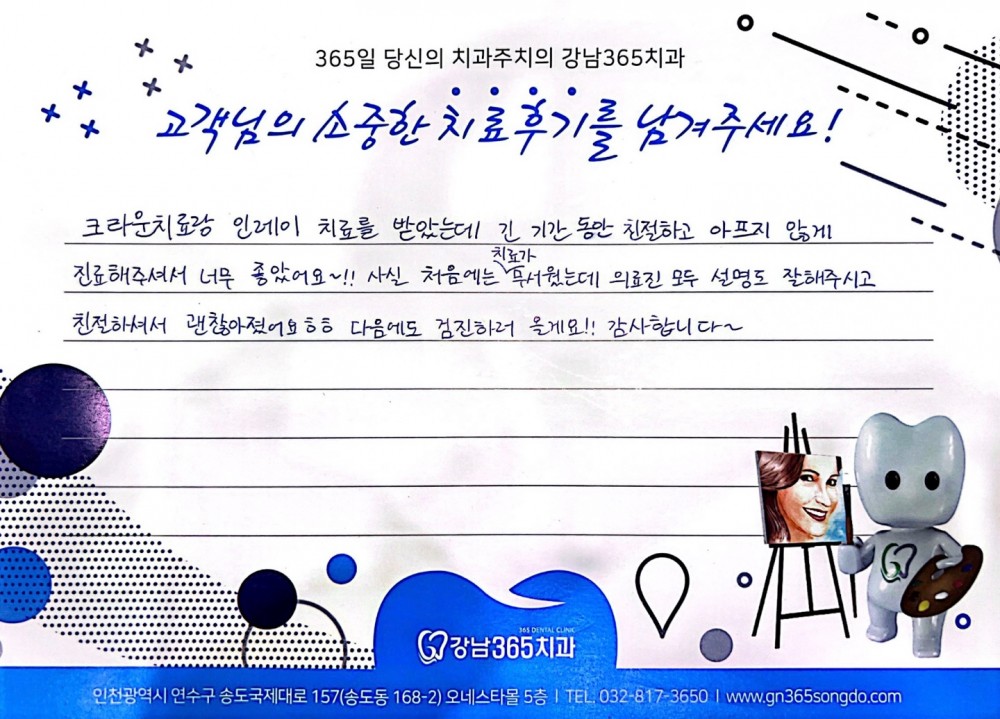 365일 당신의 치과주치의 강남365치과
고객님의 소중한 치료후기를 남겨주세요!
크라운치료랑 인레이 치료를 받았는데 긴 기간 동안 친절하고 아프지 않게
진료해주셔서 너무 좋았어요~!! 사실 처음에는 치료가 무서웠는데 의료진 모두 설명도 잘해주시고
친절하셔서 괜찮아졌어요ㅎㅎ 다음에도 검진하러 올게요!! 감사합니다~
365 DENTAL CLINIC
강남365치과
인천광역시 연수구 송도국제대로 157(송도동 168-2) 오네스타몰 5층 | TEL. 032-817-3650 | www.gn365songdo.com